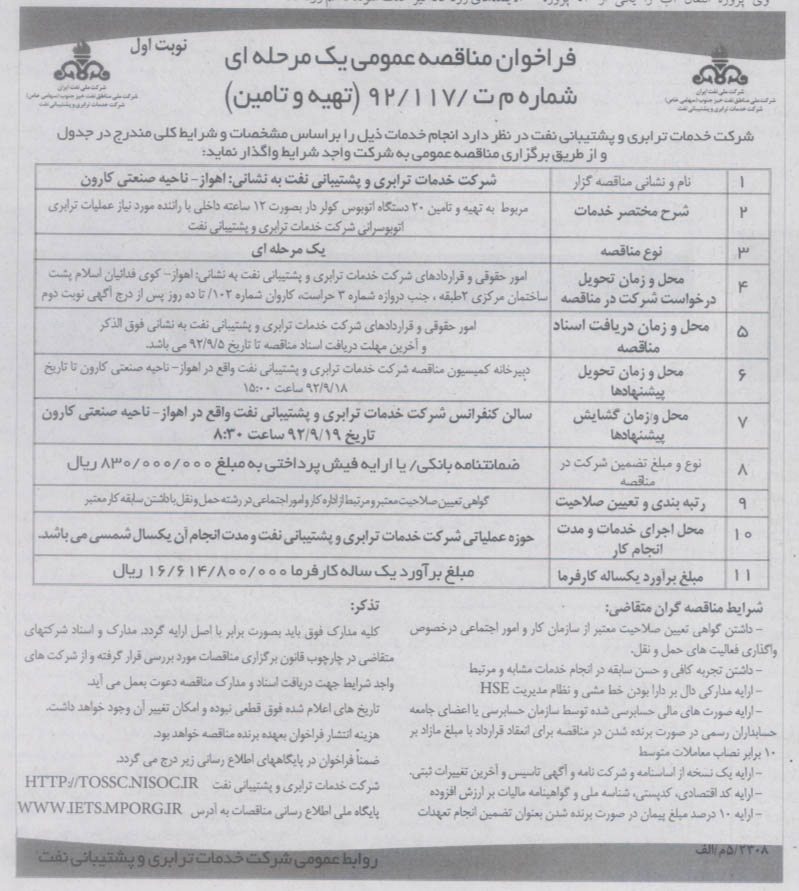 نوبت اول
فراخوان مناقصه عمومی یک مرحله ای
شماره م ت /۹۲/۱۱۷ (تهیه و تامین)
شرکت ملی نفت ایران
شرکت ملی مناطق نفت خیز جنوب (سهامی خاص)
شرکت خدمات ترابری و پشتیبانی نفت
شرکت ملی نفت ایران
شرکت ملی مناطق نفت خیز جنوب (سهامی خاص)
شرکت خدمات ترابری و پشتیبانی نفت
شرکت خدمات ترابری و پشتیبانی نفت در نظر دارد انجام خدمات ذیل را براساس مشخصات و شرایط کلی مندرج در جدول
و از طریق برگزاری مناقصه عمومی به شرکت واجد شرایط واگذار نماید:
۱ نام و نشانی مناقصه گزار شرکت خدمات ترابری و پشتیبانی نفت به نشانی: اهواز- ناحیه صنعتی کارون
۲ شرح مختصر خدمات مربوط به تهیه و تامین ۲۰ دستگاه اتوبوس کولر دار بصورت ۱۲ ساعته داخلی با راننده مورد نیاز عملیات ترابری
اتوبوسرانی شرکت خدمات ترابری و پشتیبانی نفت
۳ نوع مناقصه یک مرحله ای
۴ محل و زمان تحویل درخواست شرکت در مناقصه امور حقوقی و قراردادهای شرکت خدمات ترابری و پشتیبانی نفت به نشانی: اهواز- کوی فدائیان اسلام پشت
ساختمان مرکزی ۲طبقه ، جنب دروازه شماره ۳ حراست، کاروان شماره ۱۰۲/ تا ده روز پس از درج آگهی نوبت دوم
۵ محل و زمان دریافت اسناد مناقصه امور حقوقی و قراردادهای شرکت خدمات ترابری و پشتیبانی نفت به نشانی فوق الذکر
و آخرین مهلت دریافت اسناد مناقصه تا تاریخ ۹۲/۹/۵ می باشد.
۶ محل و زمان تحویل پیشنهادها دبیرخانه کمیسیون مناقصه شرکت خدمات ترابری و پشتیبانی نفت واقع در اهواز- ناحیه صنعتی کارون تا تاریخ
۹۲/۹/۱۸ ساعت ۱۵:۰۰
۷ محل وزمان گشایش پیشنهادها سالن کنفرانس شرکت خدمات ترابری و پشتیبانی نفت واقع در اهواز- ناحیه صنعتی کارون
تاریخ ۹۲/۹/۱۹ ساعت ۸:۳۰
۸ نوع و مبلغ تضمین شرکت در مناقصه ضمانتنامه بانکی/ یا ارایه فیش پرداختی به مبلغ ۸۳۰/۰۰۰/۰۰۰ ریال
۹ رتبه بندی و تعیین صلاحیت گواهی تعیین صلاحیت معتبر و مرتبط از اداره کار و امور اجتماعی در رشته حمل و نقل با داشتن سابقه کار معتبر
۱۰ محل اجرای خدمات و مدت انجام کار حوزه عملیاتی شرکت خدمات ترابری و پشتیبانی نفت و مدت انجام آن یکسال شمسی می باشد.
۱۱ مبلغ برآورد یکساله کارفرما مبلغ برآورد یک ساله کارفرما ۱۶/۶۱۴/۸۰۰/۰۰۰ ریال
شرایط مناقصه گران متقاضی:
- داشتن گواهی تعیین صلاحیت معتبر از سازمان کار و امور اجتماعی درخصوص
واگذاری فعالیت های حمل و نقل.
- داشتن تجربه کافی و حسن سابقه در انجام خدمات مشابه و مرتبط
- ارایه مدارکی دال بر دارا بودن خط مشی و نظام مدیریت HSE
- ارایه صورت های مالی حسابرسی شده توسط سازمان حسابرسی یا اعضای جامعه
حسابداران رسمی در صورت برنده شدن در مناقصه برای انعقاد قرارداد با مبلغ مازاد بر
۱۰ برابر نصاب معاملات متوسط
- ارایه یک نسخه از اساسنامه و شرکت نامه و آگهی تاسیس و آخرین تغییرات ثبتی.
- ارایه کد اقتصادی، کدپستی، شناسه ملی و گواهینامه مالیات بر ارزش افزوده
- ارایه ۱۰ درصد مبلغ پیمان در صورت برنده شدن بعنوان تضمین انجام تعهدات
تذکر:
کلیه مدارک فوق باید بصورت برابر با اصل ارایه گردد. مدارک و اسناد شرکتهای
متقاضی در چارچوب قانون برگزاری مناقصات مورد بررسی قرار گرفته و از شرکت های
واجد شرایط جهت دریافت اسناد و مدارک مناقصه دعوت بعمل می آید.
تاریخ های اعلام شده فوق قطعی نبوده و امکان تغییر آن وجود خواهد داشت.
هزینه انتشار فراخوان بعهده برنده مناقصه خواهد بود.
ضمناً فراخوان در پایگاههای اطلاع رسانی زیر درج می گردد.
شرکت خدمات ترابری و پشتیبانی نفت HTTP://TOSSC.NISOC.IR
پایگاه ملی اطلاع رسانی مناقصات به آدرس WWW.IETS.MPORG.IR
۵/۲۳۰۸/م/الف
روابط عمومی شرکت خدمات ترابری و پشتیبانی نفت